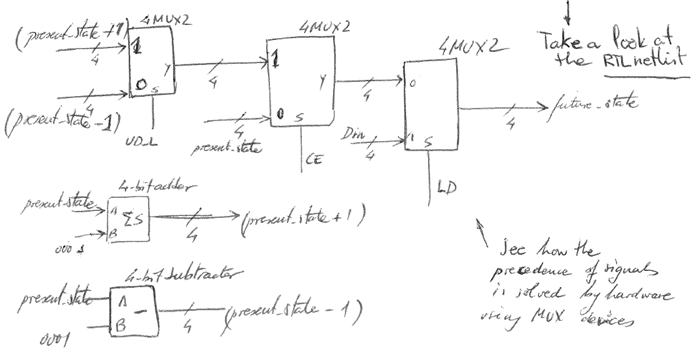 4MUX2
(present_state+1)
4
1
0
S
Y
4
(present_state-1)
UD_L
4MUX2
4
1
0
S
Y
4
present_state
CE
4MUX2
4
0
1
S
Din
4
LD
4
future_state
Take a look at
the RTL netlist
4-bit adder
present_state
A
B
ΣS
0001
4
(present_state+1)
4-bit subtractor
present_state
A
B
-
0001
4
(present_state-1)
See how the
precedence of signals
is solved by hardware
using MUX devices